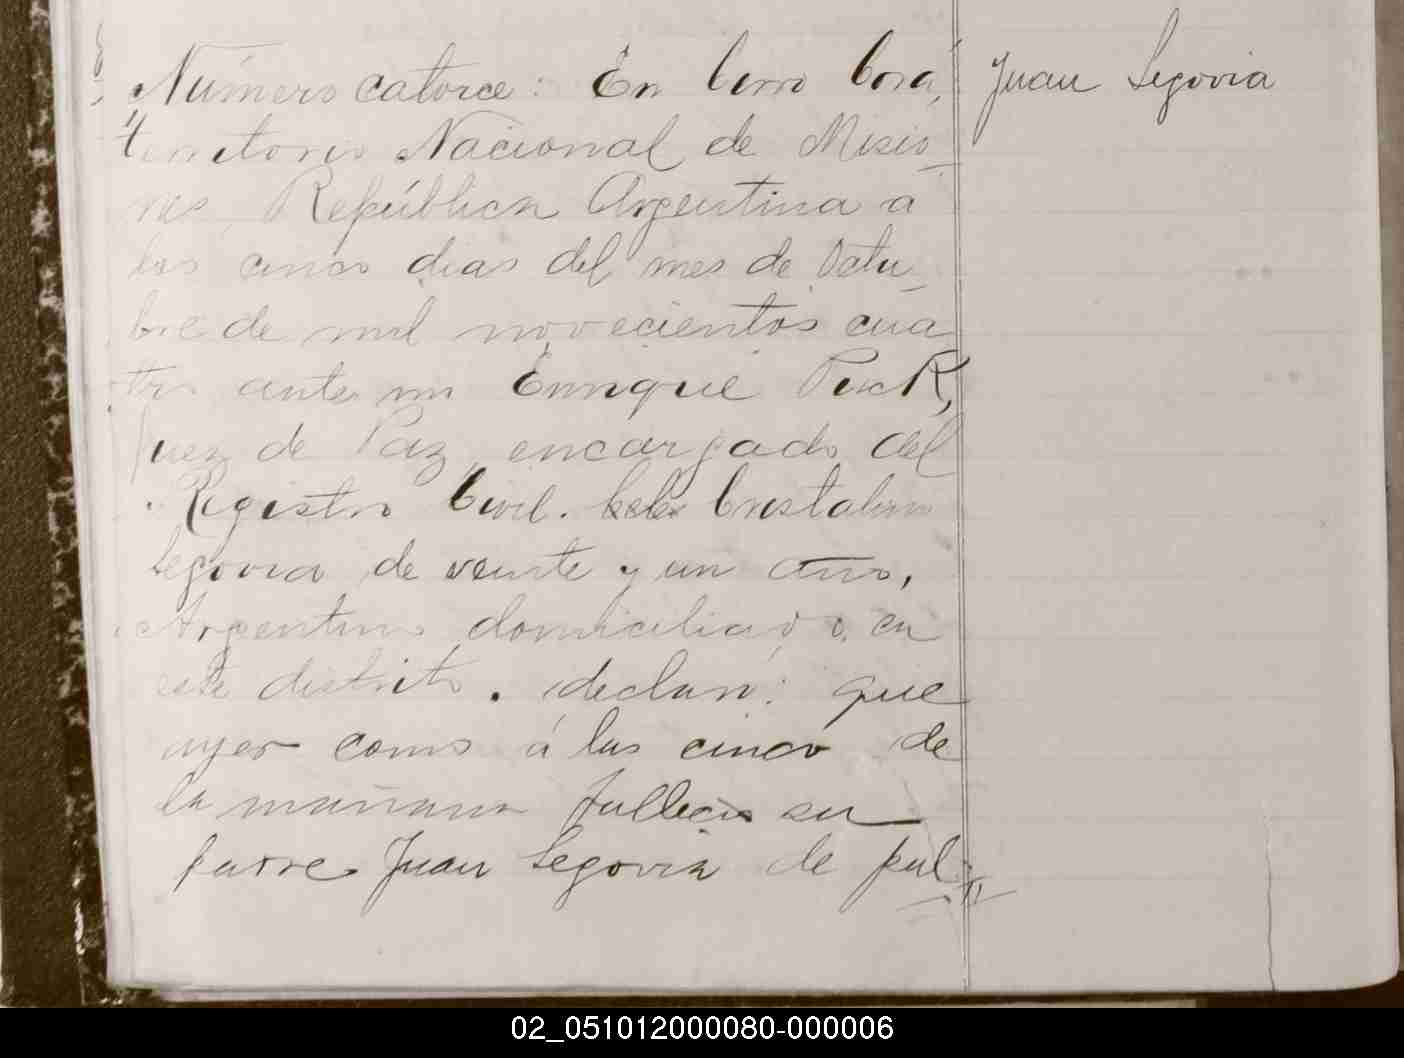 Número catorce: En Cerro Corá,
territorio Nacional de Misio-
nes, República Argentina a
los cinco dias del mes de Octu-
bre de mil novecientos cua
tro ante mi Enrique
Juez de Paz, encargado del
Registro Civil. Cristalino
Segovia de veinte y un año,
Argentino domiciliado, en
este distrito. declaró: que
ayer como á las cinco de
la mañana falleció su
padre Juan Segovia de pul-
Juan Segovia
02_051012000080-000006